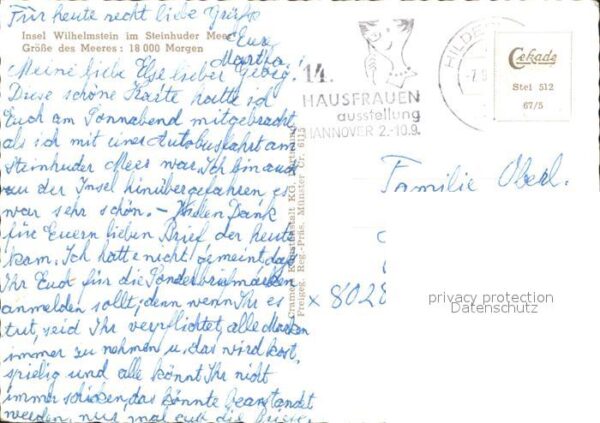 Für heute recht liebe Grüße
Eure
Martha.
Insel Wilhelmstein im Steinhuder Meer
Größe des Meeres: 18 000 Morgen
Meine liebe Else lieber Georg.
Diese schöne Karte hatte ich
Euch am Sonnabend mitgebracht
als ich mit einer Autobusfahrt am
Steinhuder Meer war. Ich bin auch
zu der Insel hinübergefahren es
war sehr schön. – Vielen Dank
für Euern lieben Brief der heute
kam. Ich hatte nicht gemeint das
Ihr Euch für die Sonderbriefmarken
anmelden sollt, denn wenn Ihr es
tut, seid Ihr verpflichtet, alle Marken
immer zu nehmen u. das wird kost,
spielig und alle könnt Ihr nicht
immer schicken, das könnte beanstandet
werden, nur mal auf die Briefe
14.
HAUSFRAUEN
ausstellung
HANNOVER 2.-10.9.
HILDE
-7.9
Cekade
Stei 512
67/5
Cramers Kunstanstalt KG, Dortmund
Freigeg. Reg.-Präs. Münster Cr. 6115
Familie Oberl.
x 8028
privacy protection
Datenschutz